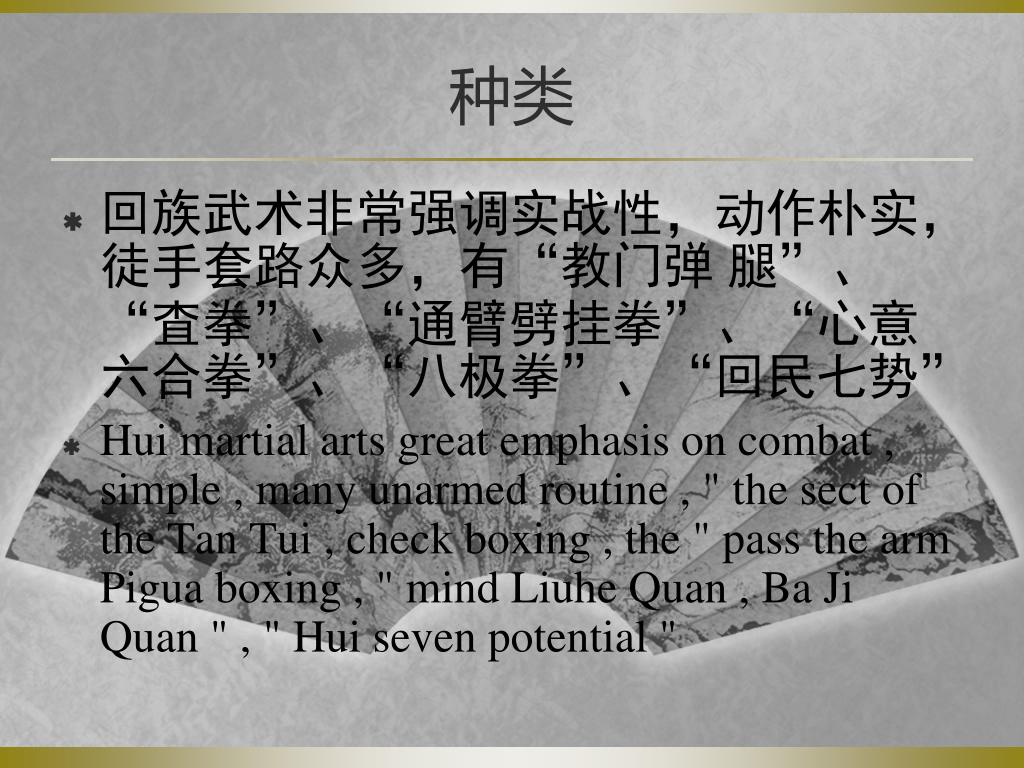 种类
回族武术非常强调实战性，动作朴实，
徒手套路众多，有“教门弹 腿”、
“査拳”、“通臂劈挂拳”、“心意
六合拳”、“八极拳”、“回民七势”
Hui martial arts great emphasis on combat ,
simple , many unarmed routine , " the sect of
the Tan Tui , check boxing , the " pass the arm
Pigua boxing , " mind Liuhe Quan , Ba Ji
Quan " , " Hui seven potential "